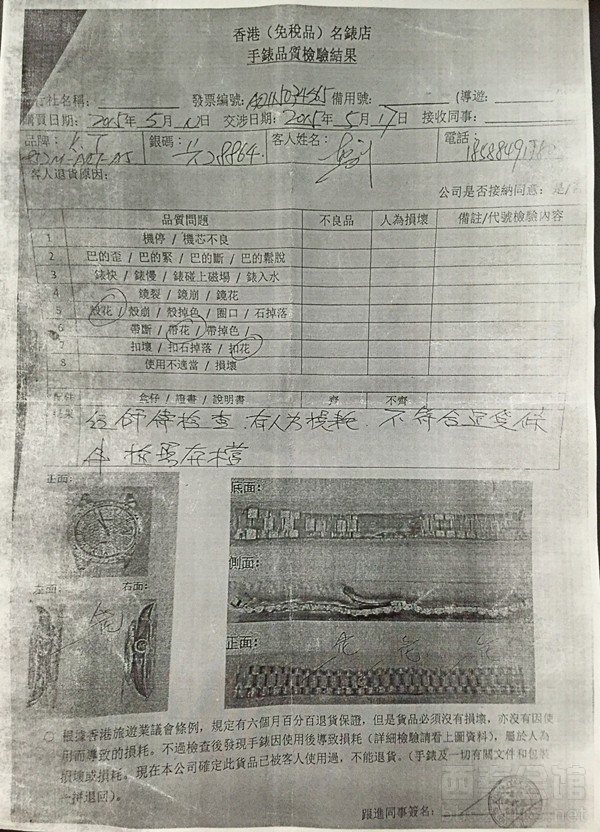 香港（免稅品）名錶店
手錶品質檢驗結果
行社名稱： 發票編號： 備用號： （導遊：
購買日期：2015年5月 日 交涉日期：2015年5月17日 接收同事：
品牌： 銀碼： 8864. 客人姓名： 電話：
客人退貨原因：
公司是否接納同意：是/
品質問題 不良品 人為損壞 備註/代號檢驗內容
1 機停 / 機芯不良
2 巴的歪 / 巴的緊 / 巴的斷 / 巴的鬆脫
3 錶快 / 錶慢 / 錶碰上磁場 / 錶入水
4 鏡裂 / 鏡崩 / 鏡花
5 殼花 / 殼崩 / 殼掉色 / 圈口 / 石掉落
6 帶斷 / 帶花 / 帶掉色 /
7 扣壞 / 扣石掉落 / 扣花
8 使用不適當 / 損壞
配件 盒仔 / 證書 / 說明書 齊 不齊
結果 经师傅检查.有人为损耗.不符合退货條
件
正面： 底面：
側面：
左面： 右面：
花
正面： 花 花 花
○ 根據香港旅遊業議會條例，規定有六個月百分百退貨保證，但是貨品必須沒有損壞，亦沒有因使
用而導致的損耗。不過檢查後發現手錶因使用後導致損耗（詳細檢驗請看上圖資料），屬於人為
損壞或損耗。現在本公司確定此貨品已被客人使用過，不能退貨。（手錶及一切有關文件和包裝
一拼退回）。
跟進同事簽名：